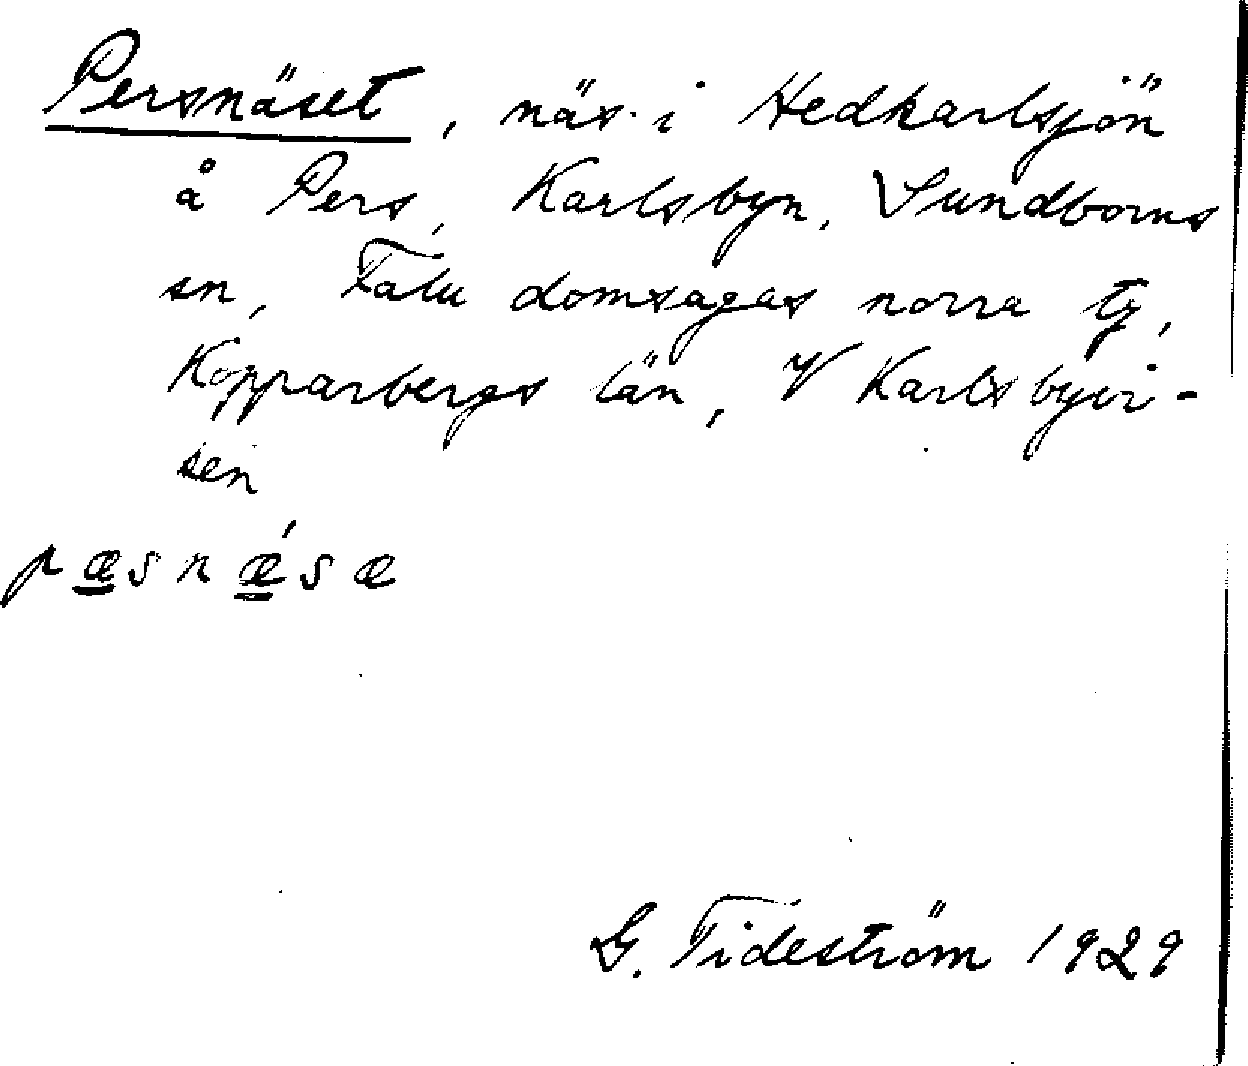 Persnäset, näs i Hedkarlsjön
å Pers, Karlsbyn, Sundborns
sn, Falu domsagas norra tg,
Kopparbergs län, V Karlsbyvi-
sen
pæsnǽsæ
G. Tideström 1929